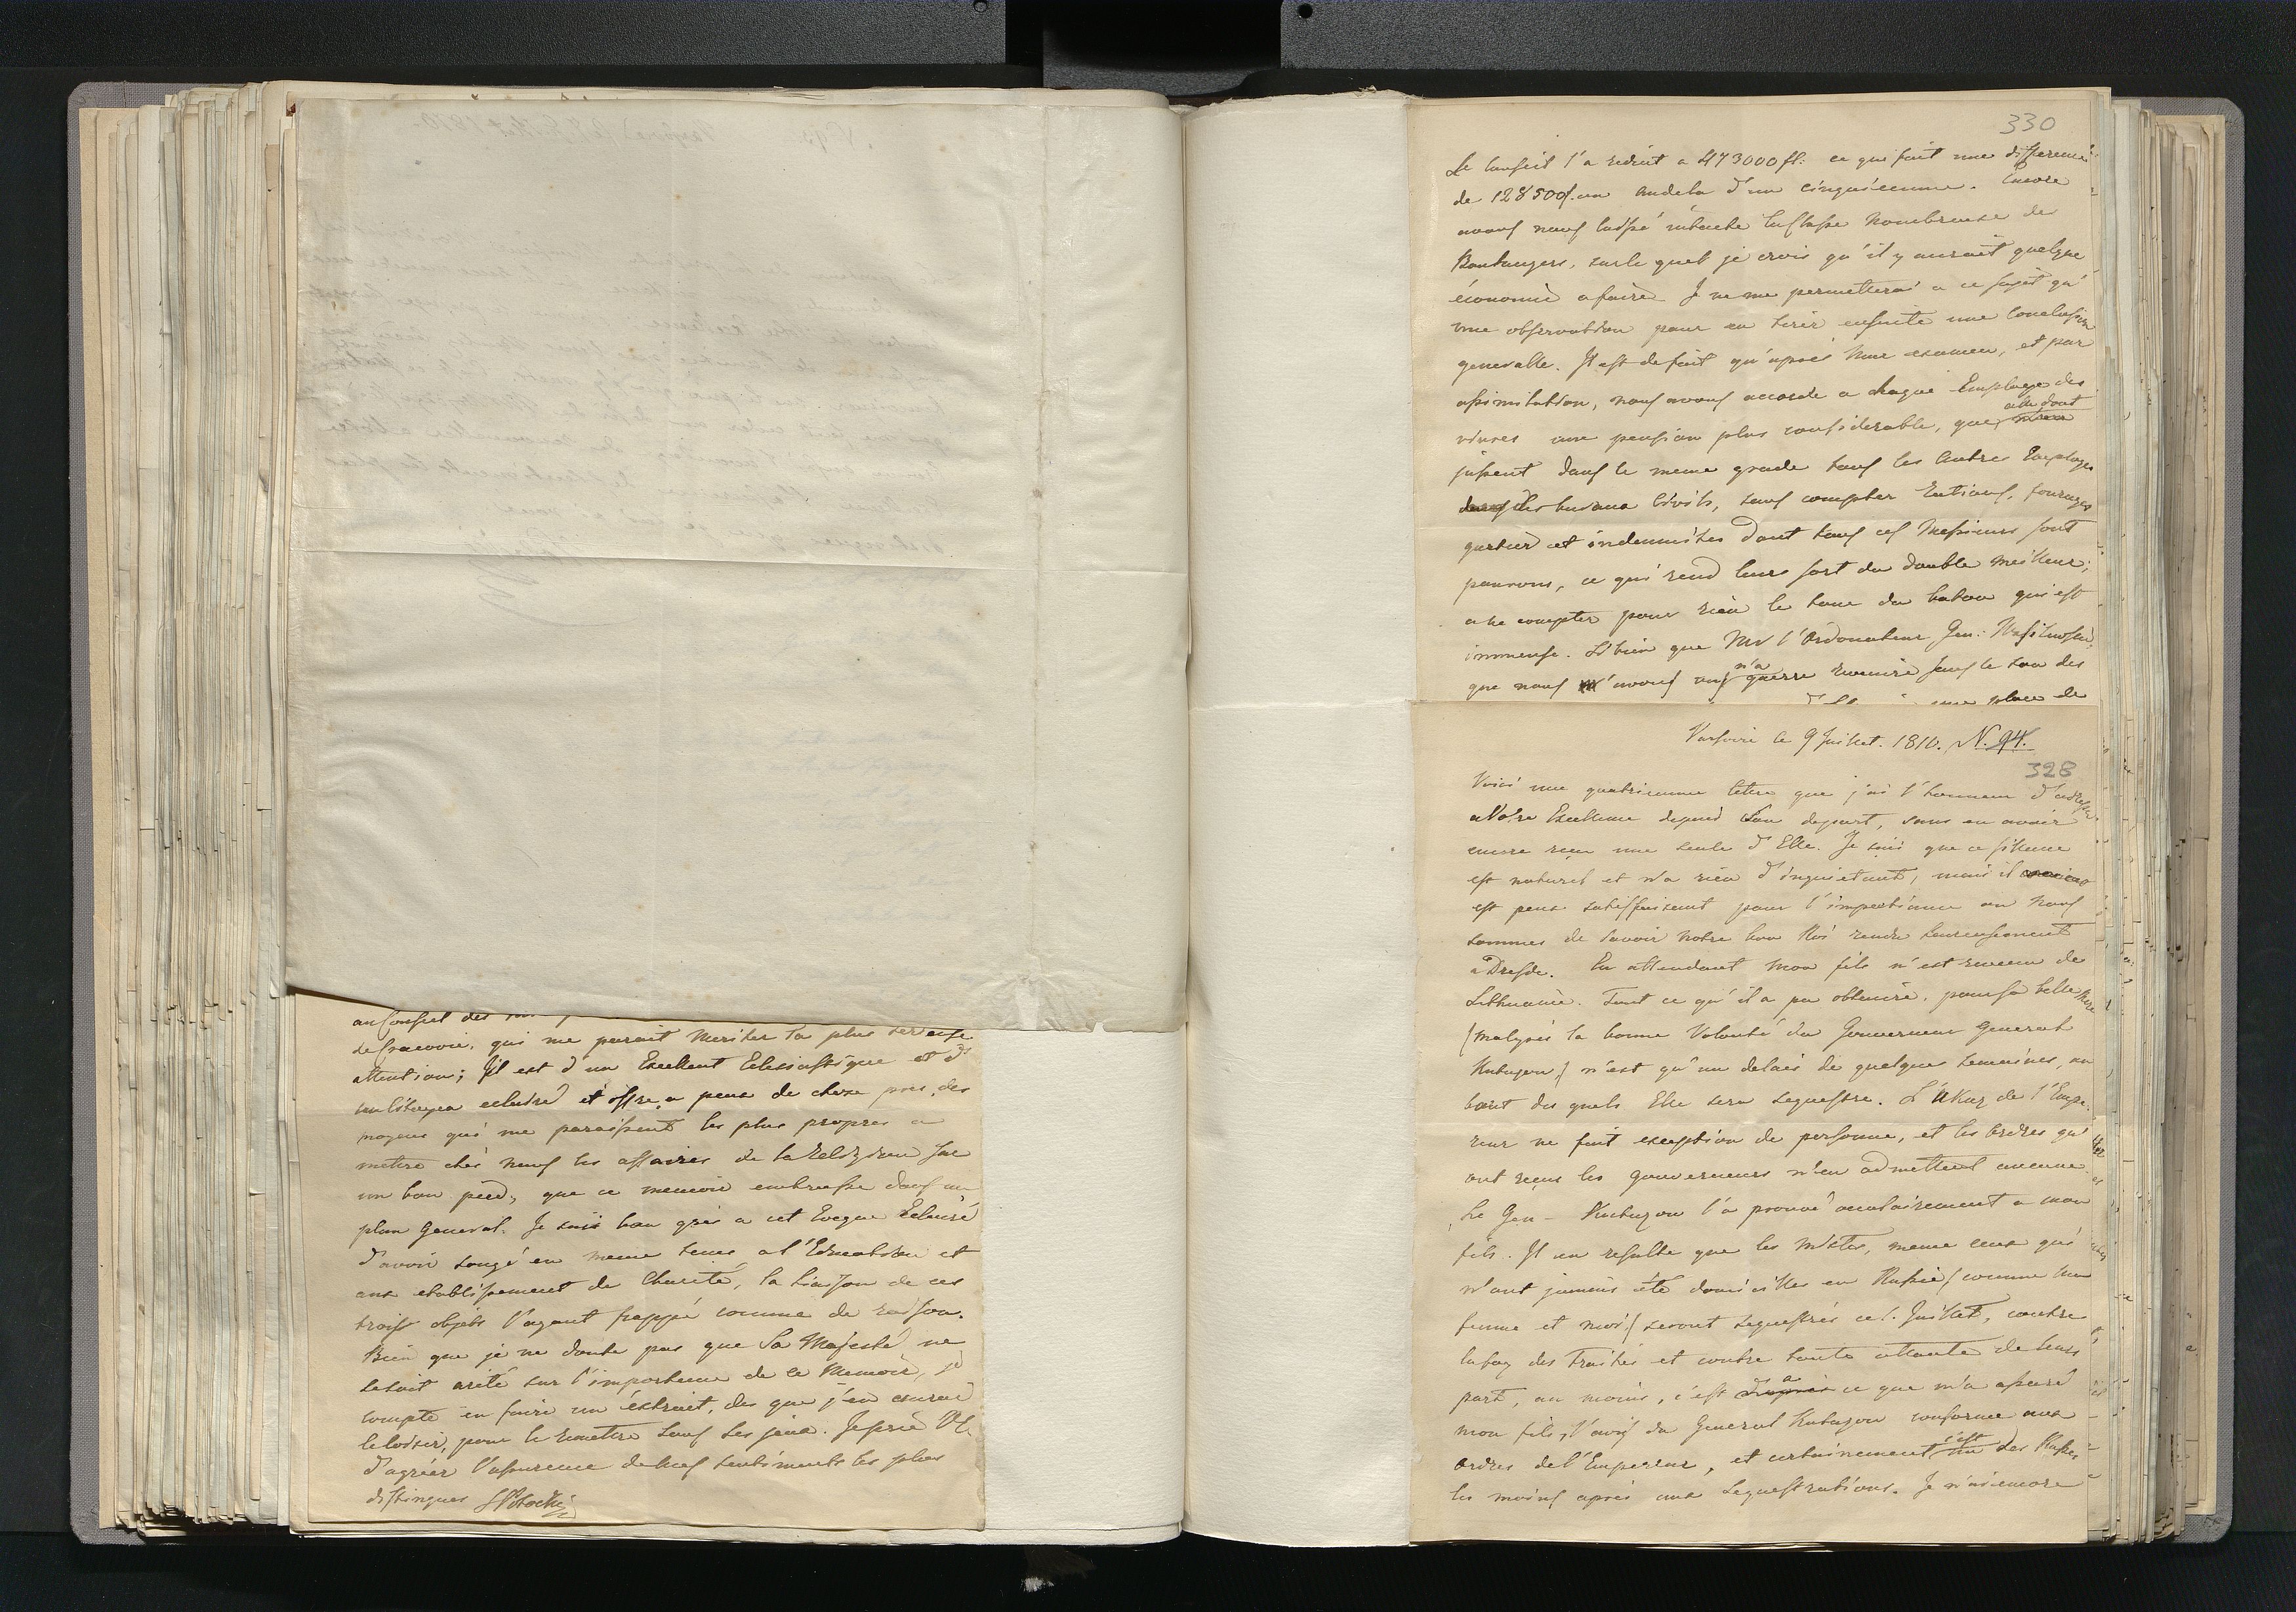 au Conseil des
de Cracovie, qui me parait meriter la plus serieuse
attention; Il est d'un Excellent Eclesiastique et d'
un Citoyen eclairé et offre, a peux de chose près, des
moyens qui me paraissent les plus propres a
metre chés nous les affaires de la Religion sur
un bon pied, que ce memoir embrasse dans un
plan General. Je sais bon gré a cet Eveque Eclairé
d'avoir songé en meme tems a l'Education et
aux etablissement de Charité, la liaison de ces
trois objets l'ayant frappé comme de raison.
Bien que je ne doute pas que Sa Majesté ne
se soit arêté sur l'importance de ce Memoir, je
compte en faire un éxtrait, des que j'en aurai
le loisir, pour le remetre sous ses jeux. Je prie VE
d'agréer l'assurance de mes sentiments les plus
distingues SPotocki
330
Le Conseil l'a reduit a 473000 fl: ce qui fait une difference
de 128500 f. un audela d'un cinquiemme. Encore
avons nous laissé intacte la Classe nombreuse de
Boulangers, sur le quel je crois qu'il y aurait quelque
économie a faire. Je ne me permetterai a ce sujet qu'
une observation pour en tirer ensuite une Conclusion
generalle. Il est de fait qu'aprés mur examen, et par
assimilation, nous avons accordé a chaque Employé des
vivres une pension plus considerable, que celle dont
jussent dans le meme grade tous les Autres Employés
des bureaux Civils, sans compter Rations, fourages
quartier et indemnités dont tous ces Messieurs sont
pourvus, ce qui rend leurs sort du double meilleur,
a ne compter pour rien le tour du baton qui est
immense. Si bien que Mr l'Ordonateur Gen:
que nous n'avons n'a guerre
une place de
Varsovie le 9 Juillet. 1810. N. 94.
328
Voici une quatriemme lettre que j'ai l'honneur d'adresser
a Votre Excellence depuis Son depart, sans en avoir
encore reçu une seule d'Elle. Je sais que ce silence
est naturel et n'a rien d'inquietant, mais il
est peux satisfaisant pour l'impatiance ou nous
sommes de savoir notre bon Roi rendu heureusement
a Dresde. En attendant mon fils n'est revenu de
Lithuanie. Tout ce qu'il a pu obtenir, pour sa belle Mere
(malgrés la bonne Volonté du Gouverneur General
Kutuzow) n'est qu'un delais de quelque semaines, au
bout des quels Elle sera sequestré. L'Ukaz de l'Empe-
reur ne fait exception de personne, et les Ordres qu'
ont reçus les gouverneurs n'en admettent aucune.
Le Gen - Kutuzow l'a prouvé oculairement a mon
fils. Il en resulte que les Mixtes, meme ceux qui
n'ont jamais été domiciliés en Russie (comme ma
femme et moi) seront sequestrés ce 1. Juillet, contre
la foy des Traités et contre toute attente de leurs
part, au moins, c'est a ce que m'a assuré
mon fils, l'avis du General Kutuzow conforme aux
Ordres de l'Empereur, et certainement c'est des Russes
les moins aprés aux Sequestrations. Je n'ai encore